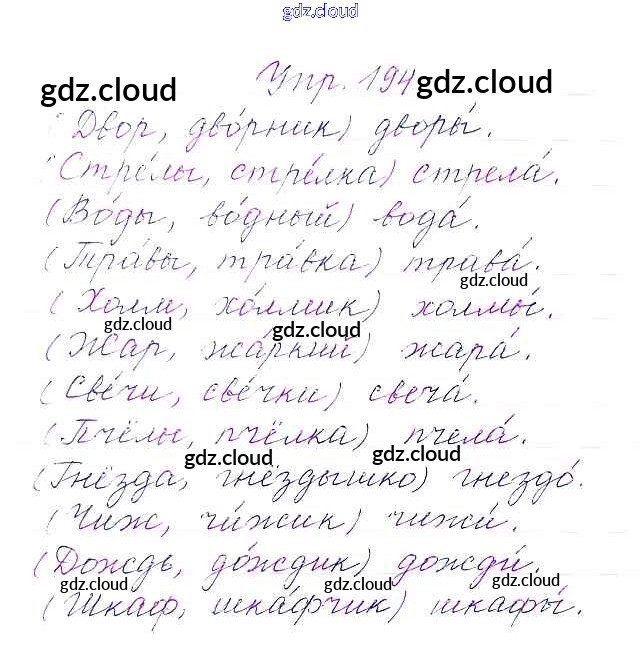 gdz.cloud
Упр. 194
gdz.cloud gdz.cloud
(Двор, дво́рник) дворы́.
(Стре́лы, стре́лка) стрела́.
(Во́ды, во́дный) вода́.
(Тра́вы, тра́вка) трава́.
gdz.cloud
(Холм, хо́лмик) холмы́.
gdz.cloud gdz.cloud
(Жар, жа́ркий) жара́.
(Све́чи, све́чки) свеча́.
(Пчёлы, пчёлка) пчела́.
gdz.cloud gdz.cloud
(Гнёзда, гнёздышко) гнездо́.
(Чиж, чи́жик) чижи́.
(Дождь, до́ждик) дожди́.
gdz.cloud gdz.cloud gdz.cloud
(Шкаф, шка́фчик) шкафы́.